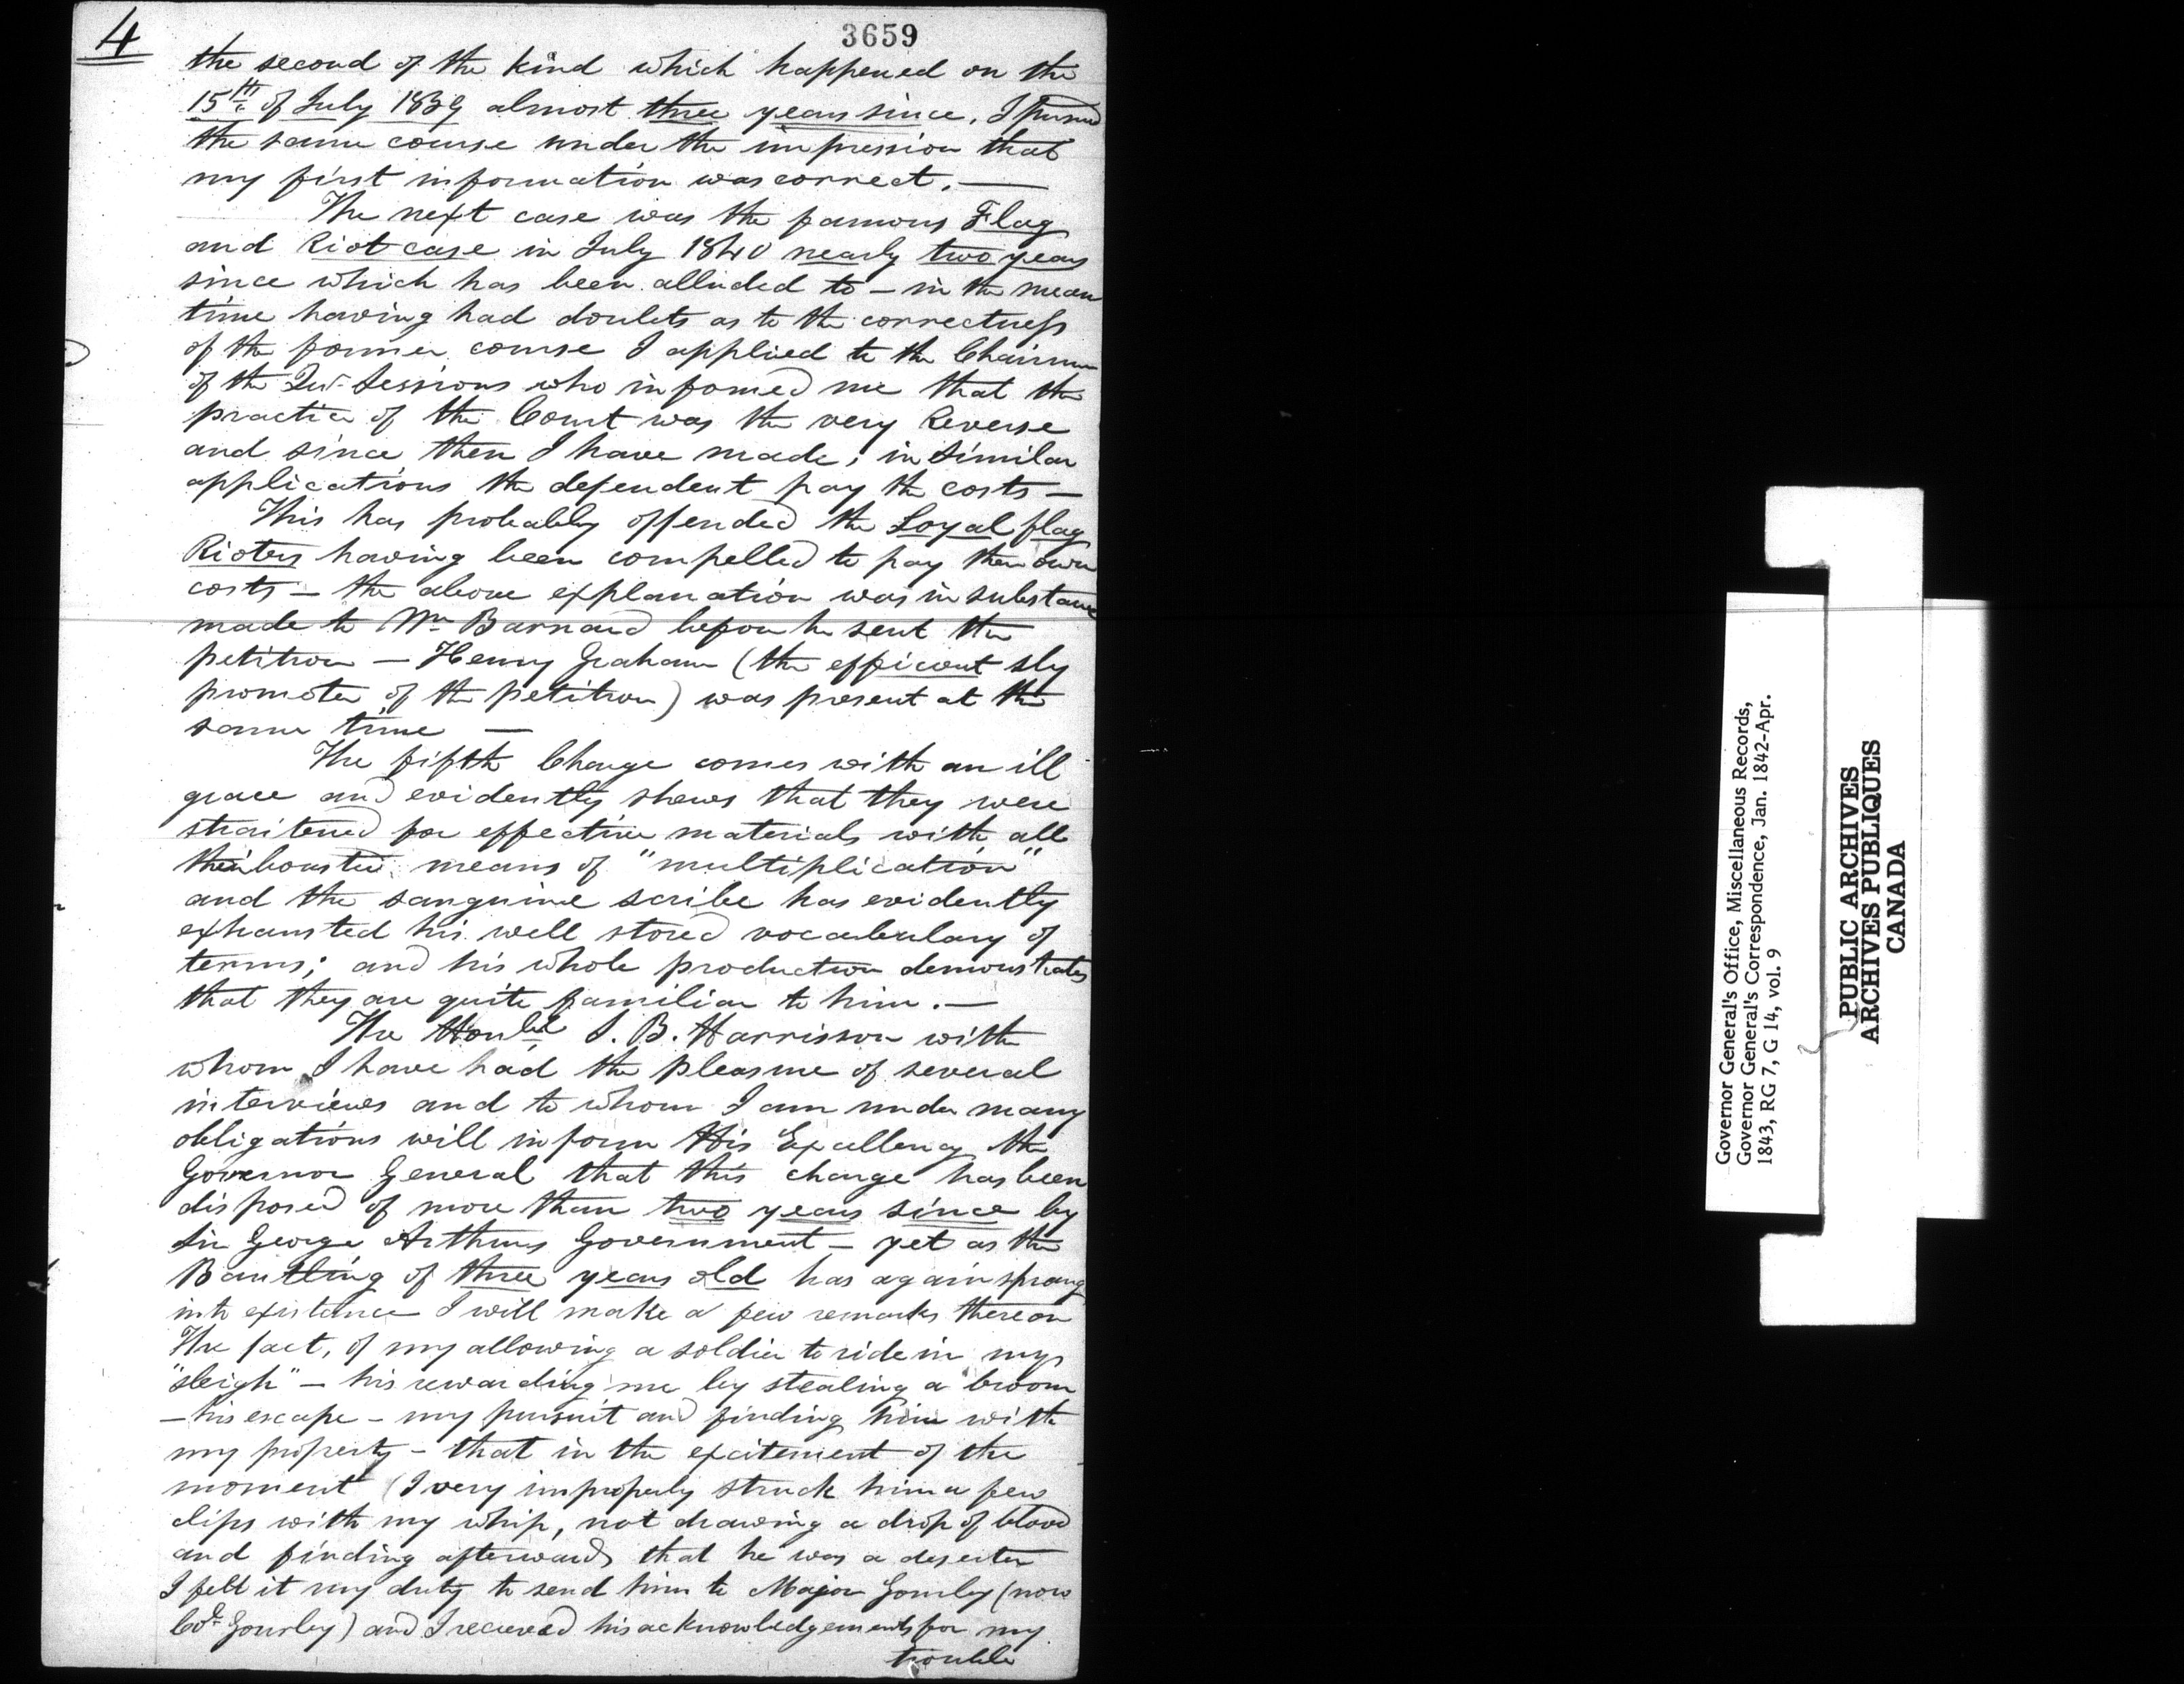 4
3659
the second of the kind which happened on the
15th of July 1839 almost three years since. I pursued
the same course under the impression that
my first information was correct. —
The next case was the famous Flag
and Riot case in July 1840 nearly two years
since which has been alluded to — in the mean
time having had doubts as to the correctness
of the former course I applied to the Chairman
of the Qur. Sessions who informed me that the
practice of the Court was the very Reverse
and since then I have made, in similar
applications the defendent pay the costs —
This has probably offended the Loyal flag
Rioters having been compelled to pay their own
costs — the above explanation was in substance
made to Mr Barnard before he sent the
petition — Henry Graham (the efficient sly
promoter of the petition) was present at the
same time —
The fifth Charge comes with an ill
grace and evidently shews that they were
straitened for effective materials with all
their boasted means of "multiplication"
and the sanguine scribe has evidently
exhausted his well stored vocabulary of
terms; and his whole production demonstrates
that they are quite familiar to him. —
The Honble S. B. Harrison with
whom I have had the pleasure of several
interviews and to whom I am under many
obligations will inform His Excellency the
Governor General that this charge has been
disposed of more than two years since by
Sir George Arthurs Government — yet as the
Bantling of three years old has again sprang
into existence I will make a few remarks thereon
The fact, of my allowing a soldier to ride in my
"sleigh" — his rewarding me by stealing a broom
— his escape — my pursuit and finding him with
my property — that in the excitement of the
moment (I very improperly struck him a few
clips with my whip, not drawing a drop of blood
and finding afterwards that he was a deserter
I felt it my duty to send him to Major Gourley (now
Col Gourley) and I received his acknowledgements for my
trouble
Governor General's Office, Miscellaneous Records,
Governor General's Correspondence, Jan. 1842-Apr.
1843, RG 7, G 14, vol. 9
PUBLIC ARCHIVES
ARCHIVES PUBLIQUES
CANADA